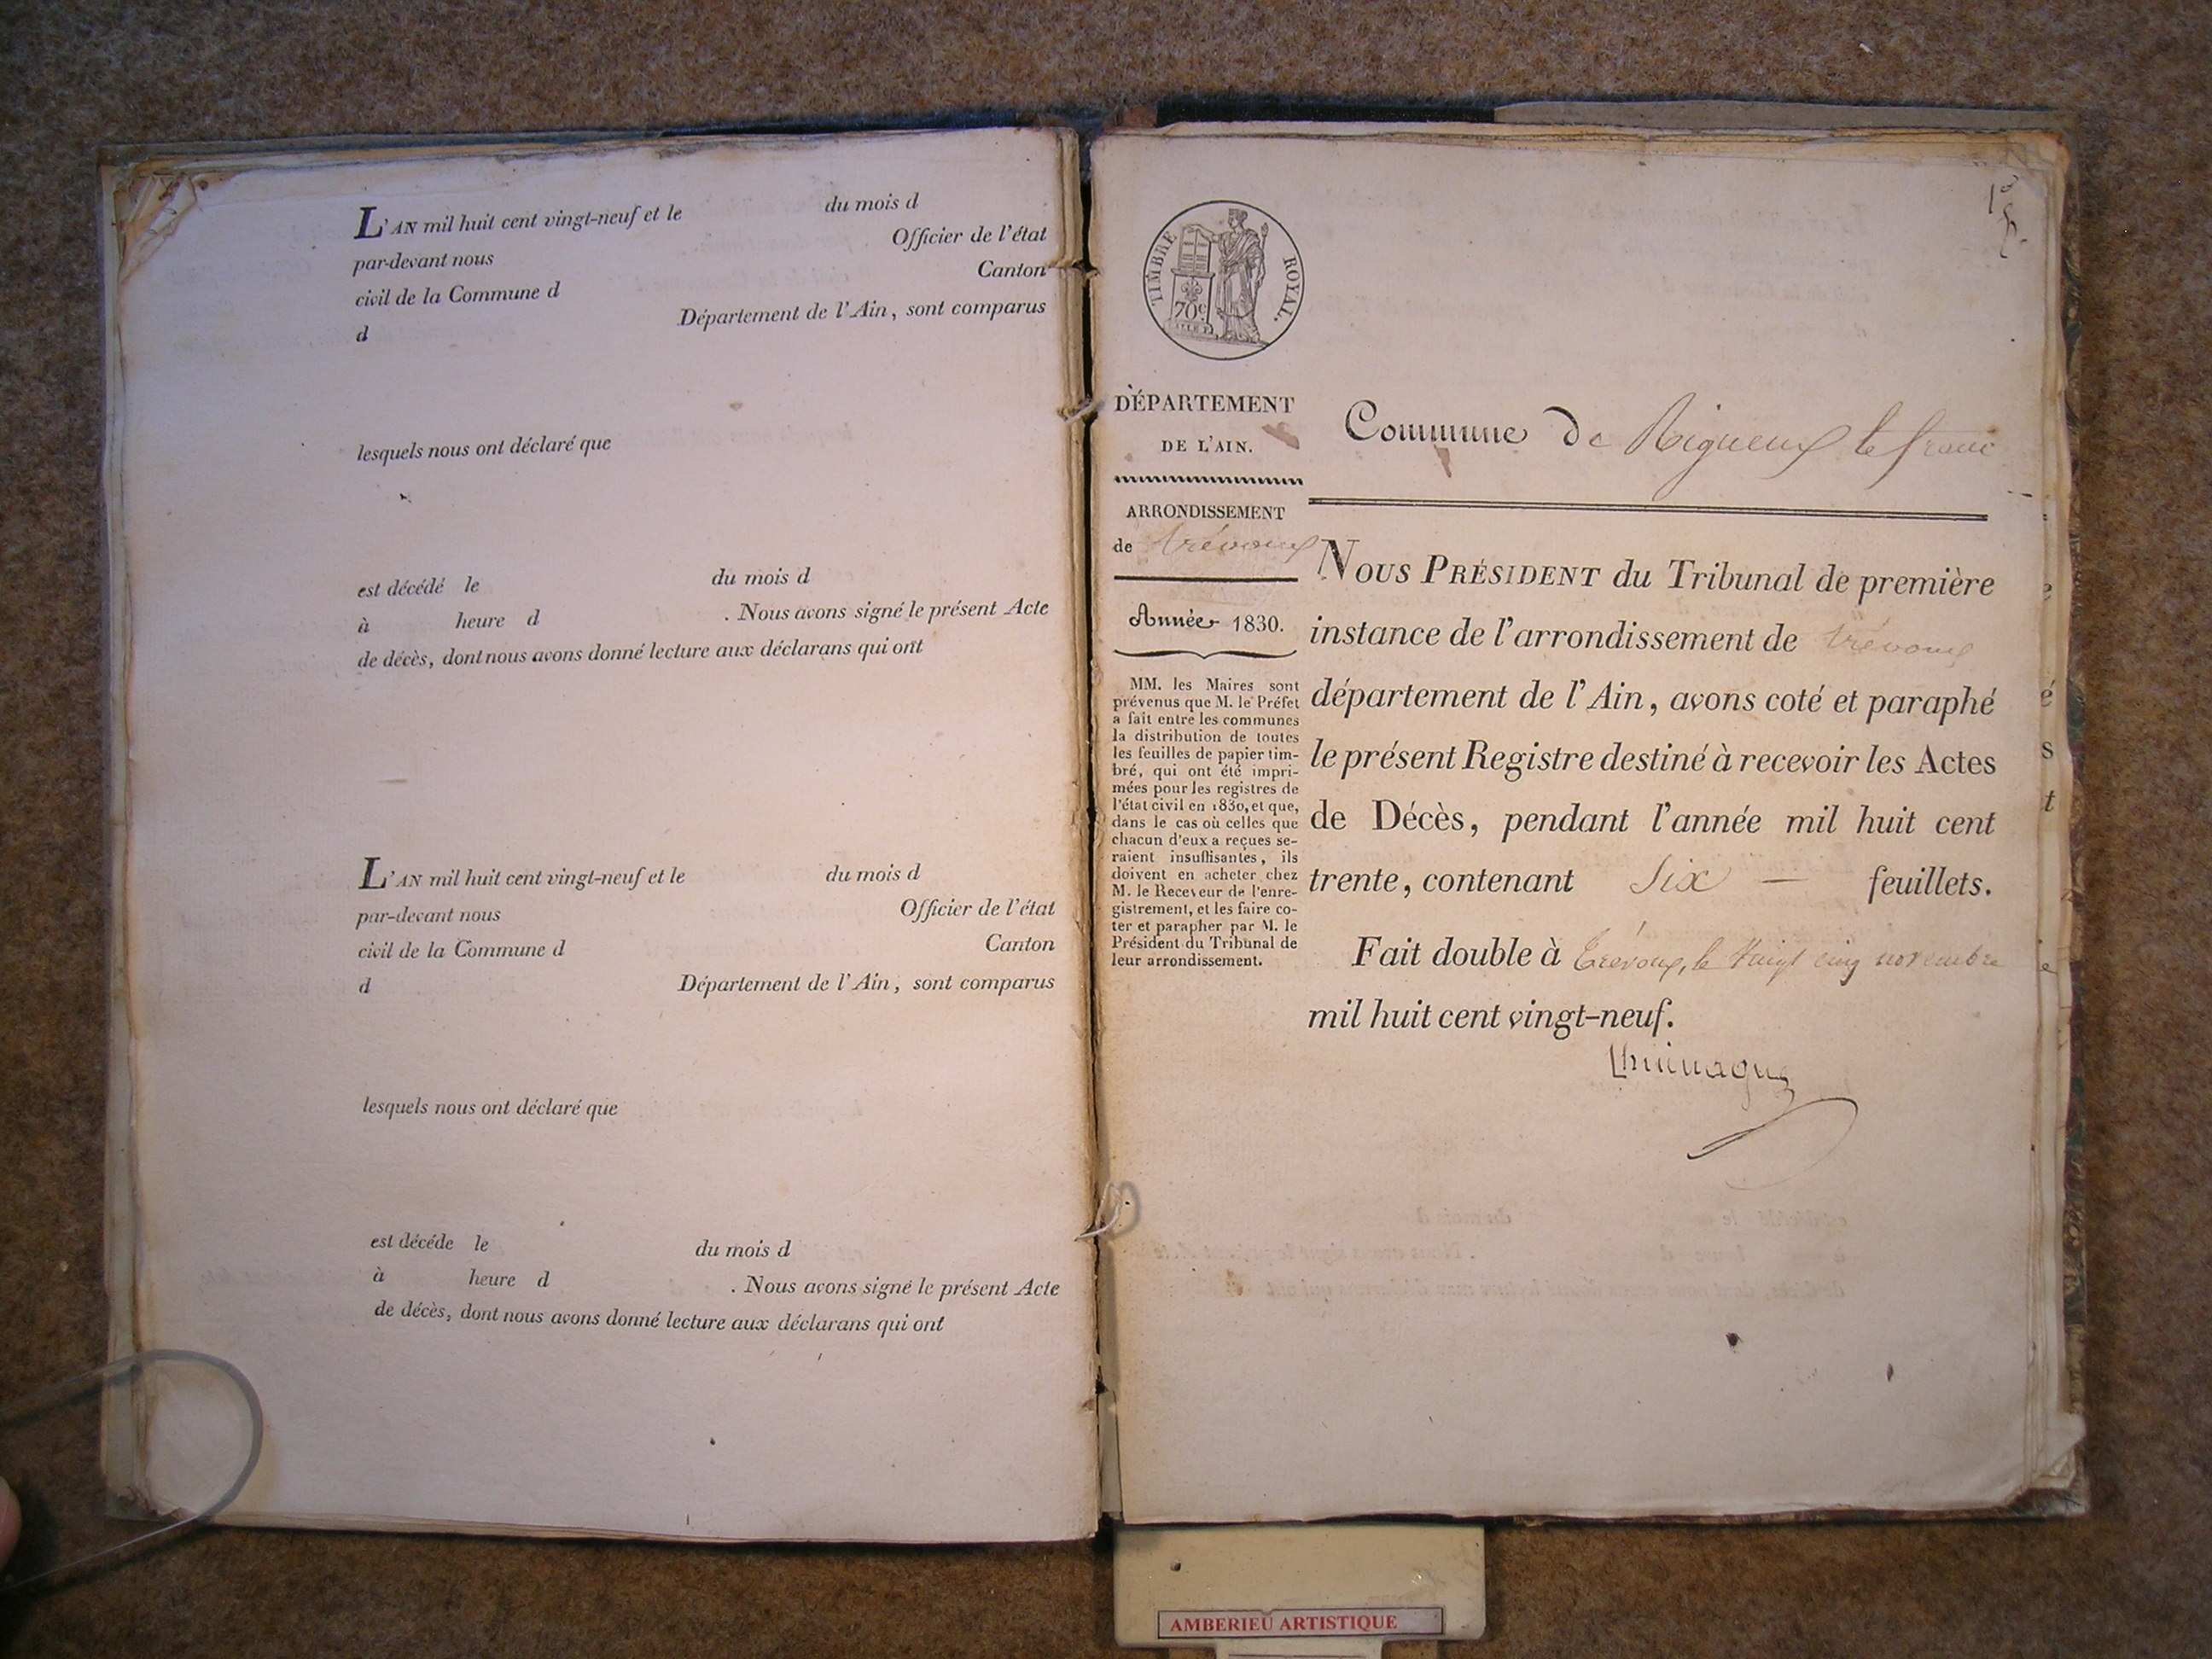 L'AN mil huit cent vingt-neuf et le du mois d
par-devant nous Officier de l'état
civil de la Commune d Canton
d Département de l'Ain, sont comparus
lesquels nous ont déclaré que
est décédé le du mois d
à heure d . Nous avons signé le présent Acte
de décès, dont nous avons donné lecture aux déclarans qui ont
L'AN mil huit cent vingt-neuf et le du mois d
par-devant nous Officier de l'état
civil de la Commune d Canton
d Département de l'Ain, sont comparus
lesquels nous ont déclaré que
est décédé le du mois d
à heure d . Nous avons signé le présent Acte
de décès, dont nous avons donné lecture aux déclarans qui ont
TIMBRE ROYAL.
70c
DÉPARTEMENT
DE L'AIN.
ARRONDISSEMENT
de trévoux
Année 1830.
MM. les Maires sont
prévenus que M. le Préfet
a fait entre les communes
la distribution de toutes
les feuilles de papier tim-
bré, qui ont été impri-
mées pour les registres de
l'état civil en 1830, et que,
dans le cas où celles que
chacun d'eux a reçues se-
raient insuffisantes, ils
doivent en acheter chez
M. le Receveur de l'enre-
gistrement, et les faire co-
ter et parapher par M. le
Président du Tribunal de
leur arrondissement.
Commune de Rigneux le franc
NOUS PRÉSIDENT du Tribunal de première
instance de l'arrondissement de trévoux
département de l'Ain, avons coté et paraphé
le présent Registre destiné à recevoir les Actes
de Décès, pendant l'année mil huit cent
trente, contenant Six feuillets.
Fait double à Trévoux, le Vingt cinq novembre
mil huit cent vingt-neuf.
AMBERIEU ARTISTIQUE